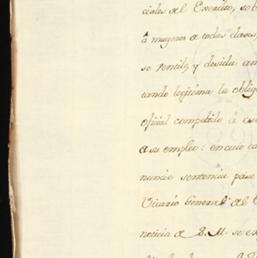 ciales del Exercito, sob
á mugeres a todas clases,
se sencilla, y devida am
tando legitima la oblig
oficial compelido a cas
a su empleo: en cuio ca
nuncie sentencia pase
Vicario General del
noticia a S. M. se ex